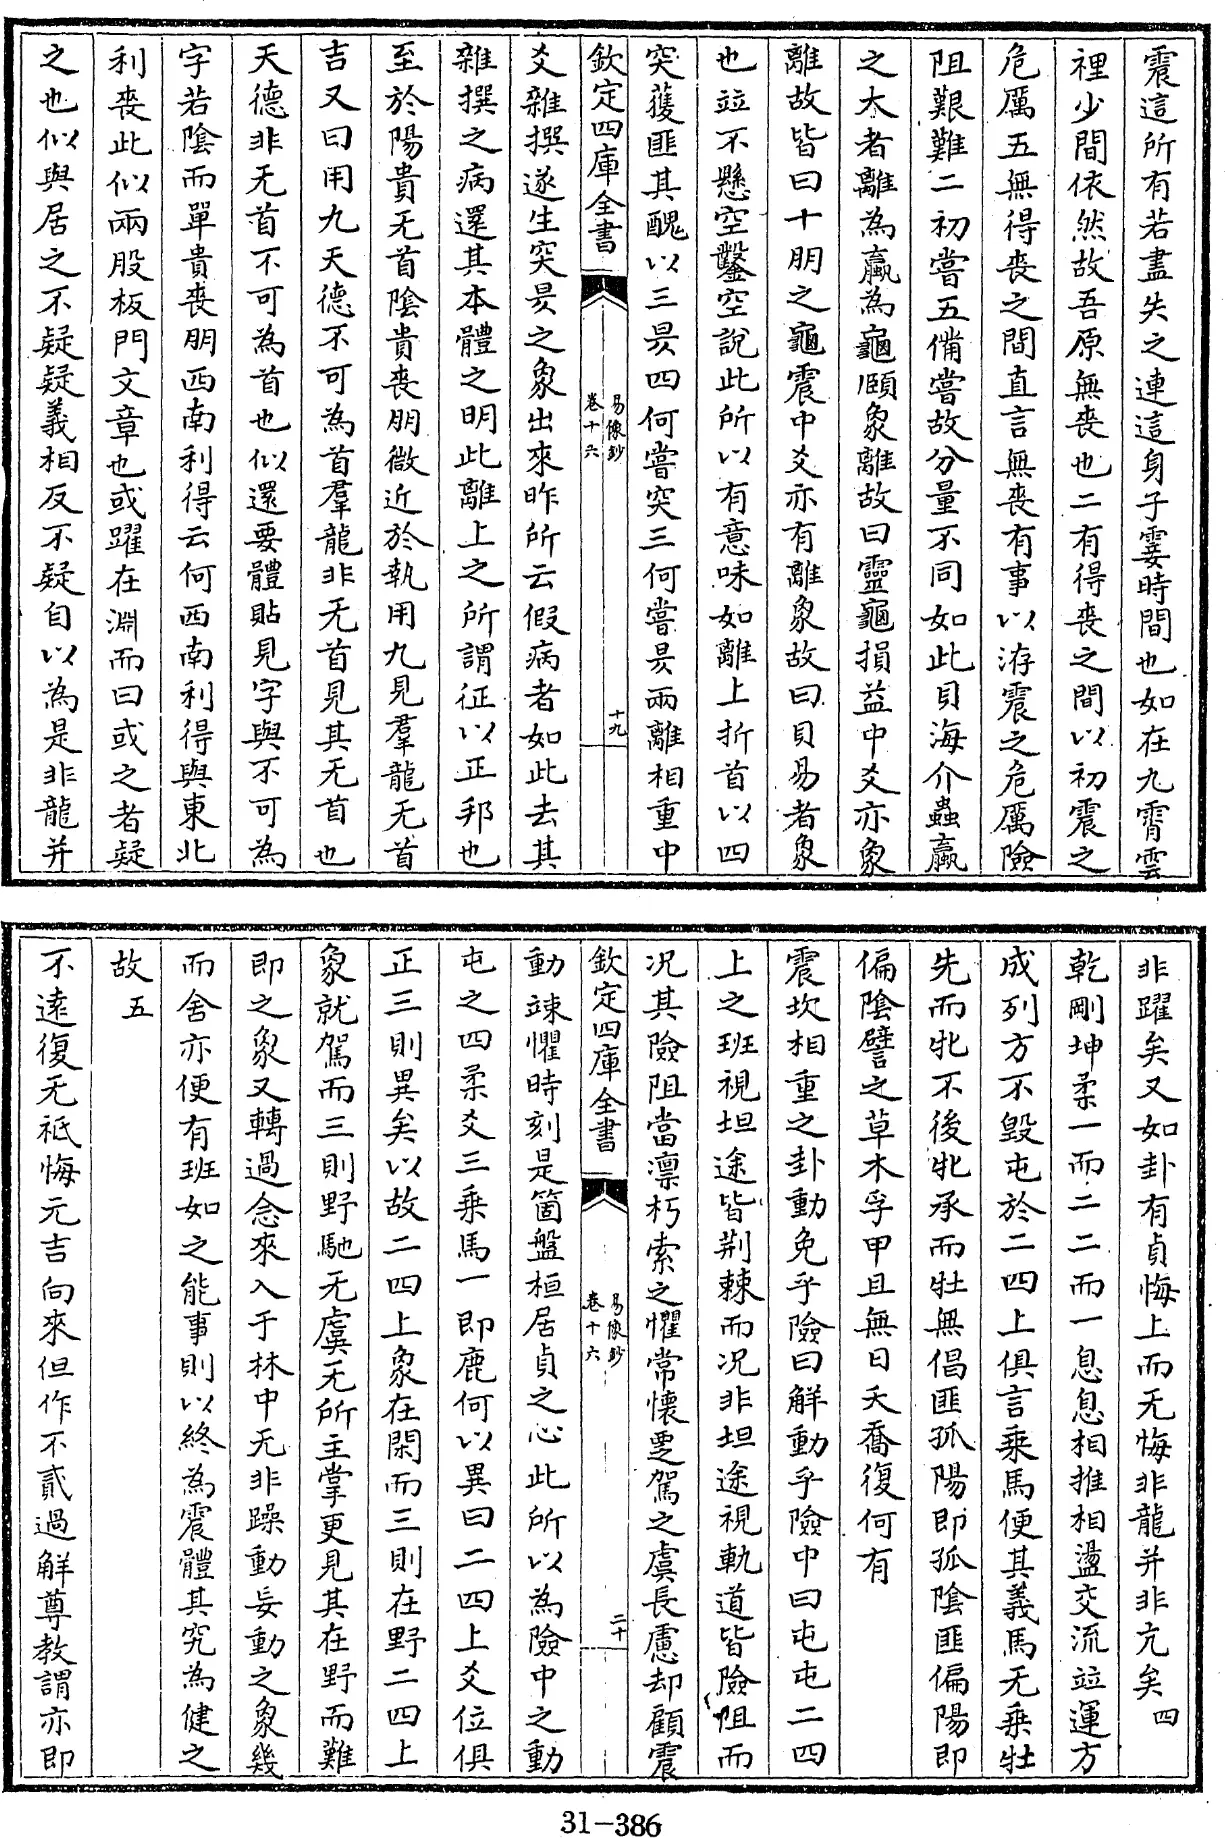 震這所有若盡失之連這身子霎時間也如在九霄雲
裡少間依然故吾原無喪也二有得喪之間以初震之
危厲五無得喪之間直言無喪有事以洊震之危厲險
阻艱難二初嘗五備嘗故分量不同如此貝海介蟲蠃
之大者離為蠃為龜頤象離故曰靈龜損益中爻亦象
離故皆曰十朋之龜震中爻亦有離象故曰貝易者象
也並不懸空鑿空說此所以有意味如離上折首以四
突獲匪其醜以三昃四何嘗突三何嘗昃兩離相重中
欽定四庫全書
易像鈔
卷十六
十九
爻雜撰遂生突昃之象出來昨所云假病者如此去其
雜撰之病還其本體之明此離上之所謂征以正邦也
至於陽貴无首陰貴喪朋微近於執用九見羣龍无首
吉又曰用九天德不可為首羣龍非无首見其无首也
天德非无首不可為首也似還要體貼見字與不可為
字若陰而單貴喪朋西南利得云何西南利得與東北
利喪此似兩股板門文章也或躍在淵而曰或之者疑
之也似與居之不疑疑義相反不疑自以為是非龍并
非躍矣又如卦有貞悔上而无悔非龍并非亢矣四
乾剛坤柔一而二二而一息息相推相盪交流並運方
成列方不毀屯於二四上俱言乘馬便其義馬无乘牡
先而牝不後牝承而牡無倡匪孤陽即孤陰匪偏陽即
偏陰譬之草木孚甲且無曰夭喬復何有
震坎相重之卦動免乎險曰解動乎險中曰屯屯二四
上之班視坦途皆荆棘而况非坦途視軌道皆險阻而
况其險阻當凛朽索之懼常懷覂駕之虞長慮却顧震
欽定四庫全書
易像鈔
卷十六
二十
動竦懼時刻是箇盤桓居貞之心此所以為險中之動
屯之四柔爻三乘馬一即鹿何以異曰二四上爻位俱
正三則異矣以故二四上象在閑而三則在野二四上
象就駕而三則野馳无虞无所主掌更見其在野而難
即之象又轉過念來入于林中无非躁動妄動之象幾
而舍亦便有班如之能事則以終為震體其究為健之
故五
不逺復无祗悔元吉向來但作不貳過解尊教謂亦即
31-386